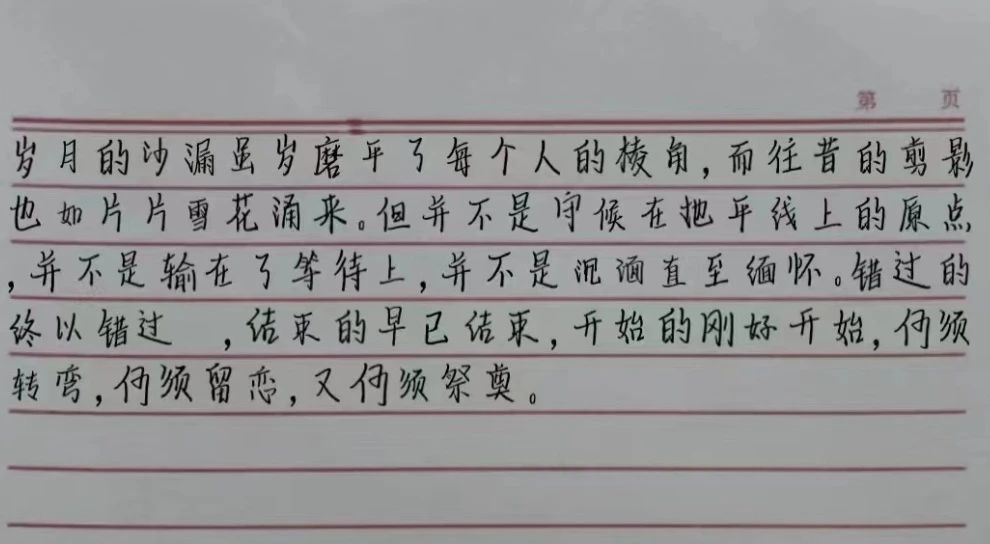 第 页
岁月的沙漏虽岁磨平了每个人的棱角,而往昔的剪影
也如片片雪花涌来。但并不是守候在地平线上的原点
,并不是输在了等待上,并不是沉湎直至缅怀。错过的
终以错过 ,结束的早已结束,开始的刚好开始,何须
转弯,何须留恋,又何须祭奠。